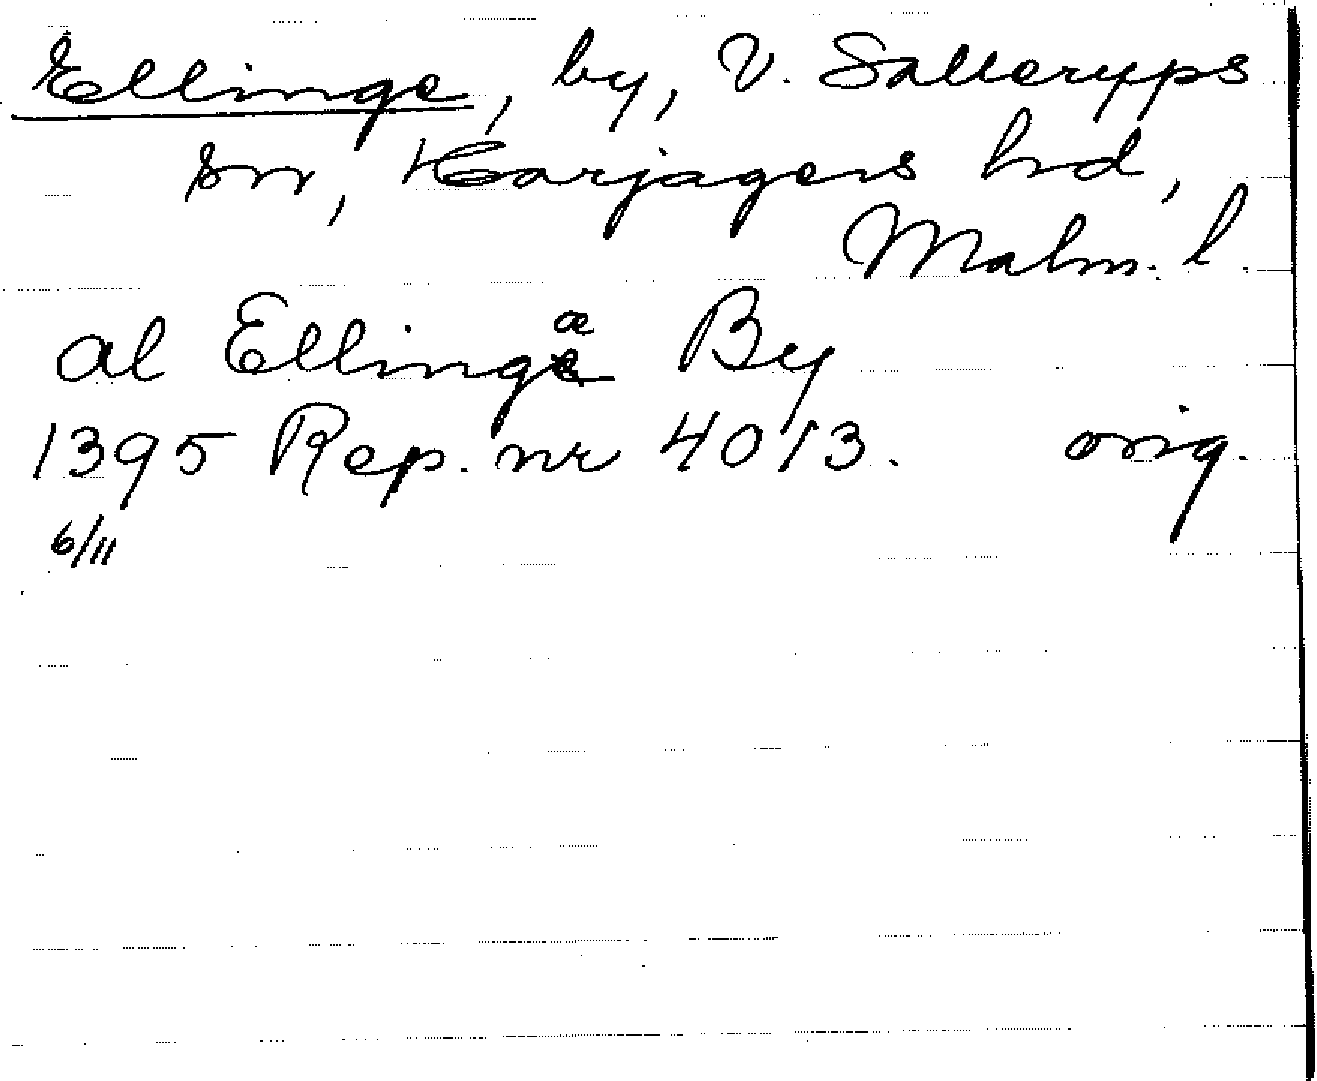 Ellinge, by, V. Salleryps
sn, Harjagers hd,
Malm. l.
al Ellingæ By
1395 Rep. nr 4013. orig.
6/11